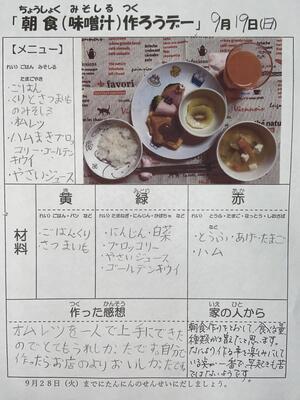 ちょうしょく みそしる つく
「朝食(味噌汁)作ろうデー」 9月19日(日)
【メニュー】
れい) ごはん みそしる
たまごやき
・ごはん
・くりとさつまいも
のみそしる
・ハムまきブロッ
コリー・ゴールデン
キウイ
・やさいジュース
favori
き
黄
みどり
緑
あか
赤
材料
れい) ごはん・パン など
・ごはん・くり
さつまいも
れい) たまねぎ・にんじん・かぼちゃ など
・にんじん・白菜
・ブロッコリー
・やさいジュース
・ゴールデンキウイ
れい) とうふ・たまご・なっとう・しおさば など
・とうふ・あげ・たまご
・ハム
つく かんそう
作った感想
いえ ひと
家の人から
オムレツを一人で上手にできた
のでとてもうれしかったです。自分で
作ったらお店のよりおいしかったです。
朝食作りをとおして、食べる量
種類がふえたと思います。
9月28日(火)までにたんにんのせんせいにだしましょう。